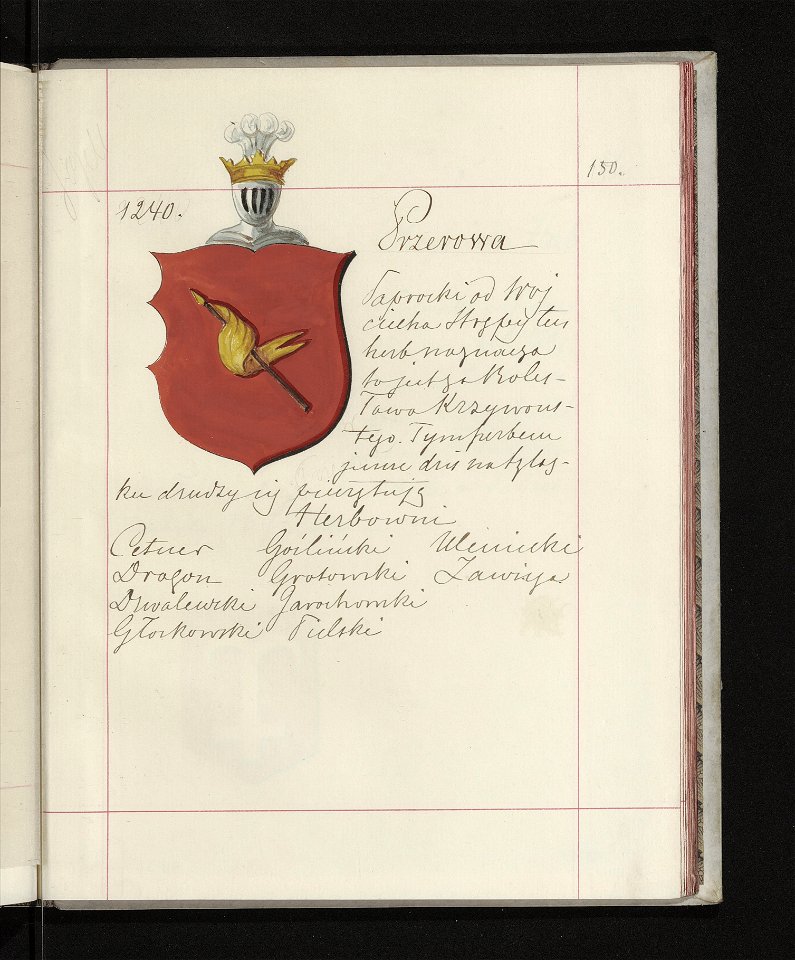 150.
1240.
Przerowa
Paprocki od Woj
ciecha Strzpy ten
herb naznacza
to jest za Boles-
ława Krzywous-
tego. Tym herbem
jenne dziś na Szlas-
ku drudzy się pieczętują
Herbowni
Cetner Gośliński Uleniecki
Dragon Grotowski Zawisza
Drwalewski Jarochowski
Głoskowski Pielski